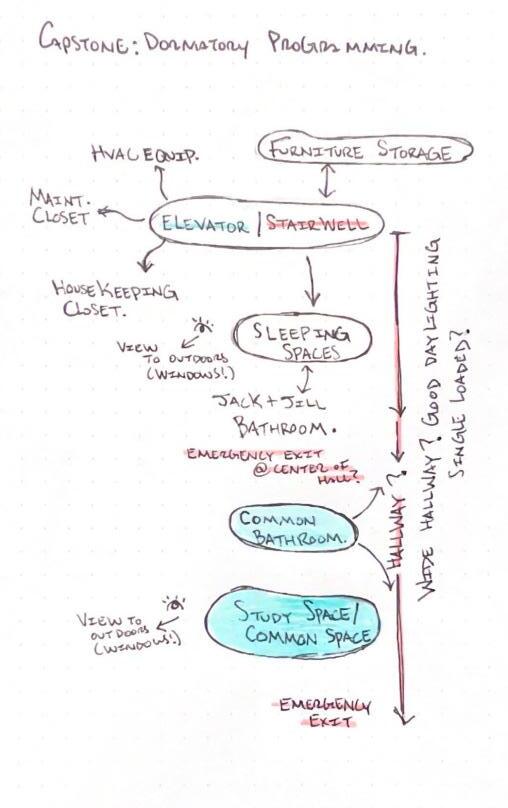 CAPSTONE: DORMATORY PROGRAMMING.
HVAC EQUIP.
FURNITURE STORAGE
MAINT.
CLOSET
ELEVATOR | STAIRWELL
HOUSEKEEPING
CLOSET.
SLEEPING
SPACES
VIEW
TO OUTDOORS
(WINDOWS!)
JACK + JILL
BATHROOM.
EMERGENCY EXIT
@ CENTER OF
HALL?
HALLWAY?
WIDE HALLWAY? GOOD DAYLIGHTING
SINGLE LOADED?
COMMON
BATHROOM.
STUDY SPACE/
COMMON SPACE
VIEW TO
OUTDOORS
(WINDOWS!)
EMERGENCY
EXIT